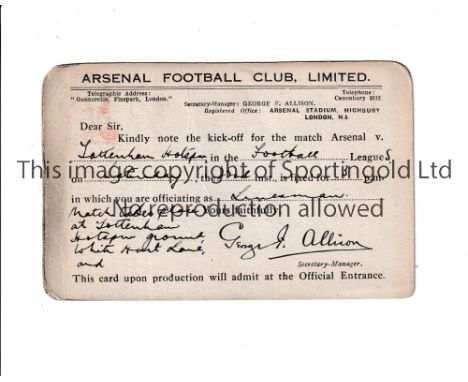 ARSENAL FOOTBALL CLUB, LIMITED.
Telegraphic Address:
"Gunneretic, Finspark, London."
Telephone:
Canonbury 2312
Secretary-Manager: GEORGE F. ALLISON.
Registered Office: ARSENAL STADIUM, HIGHBURY
LONDON, N.5.
Dear Sir,
Kindly note the kick-off for the match Arsenal v.
Tottenham Hotspur in the Football League S
on inst., is fixed for 3 pm
in which you are officiating as Linesman
Match Yours faithfully,
at Tottenham
Hotspur Ground
White Hart Lane,
and
George F. Allison
Secretary-Manager.
This card upon production will admit at the Official Entrance.
This image is copyright of Sportingold Ltd
No reproduction allowed